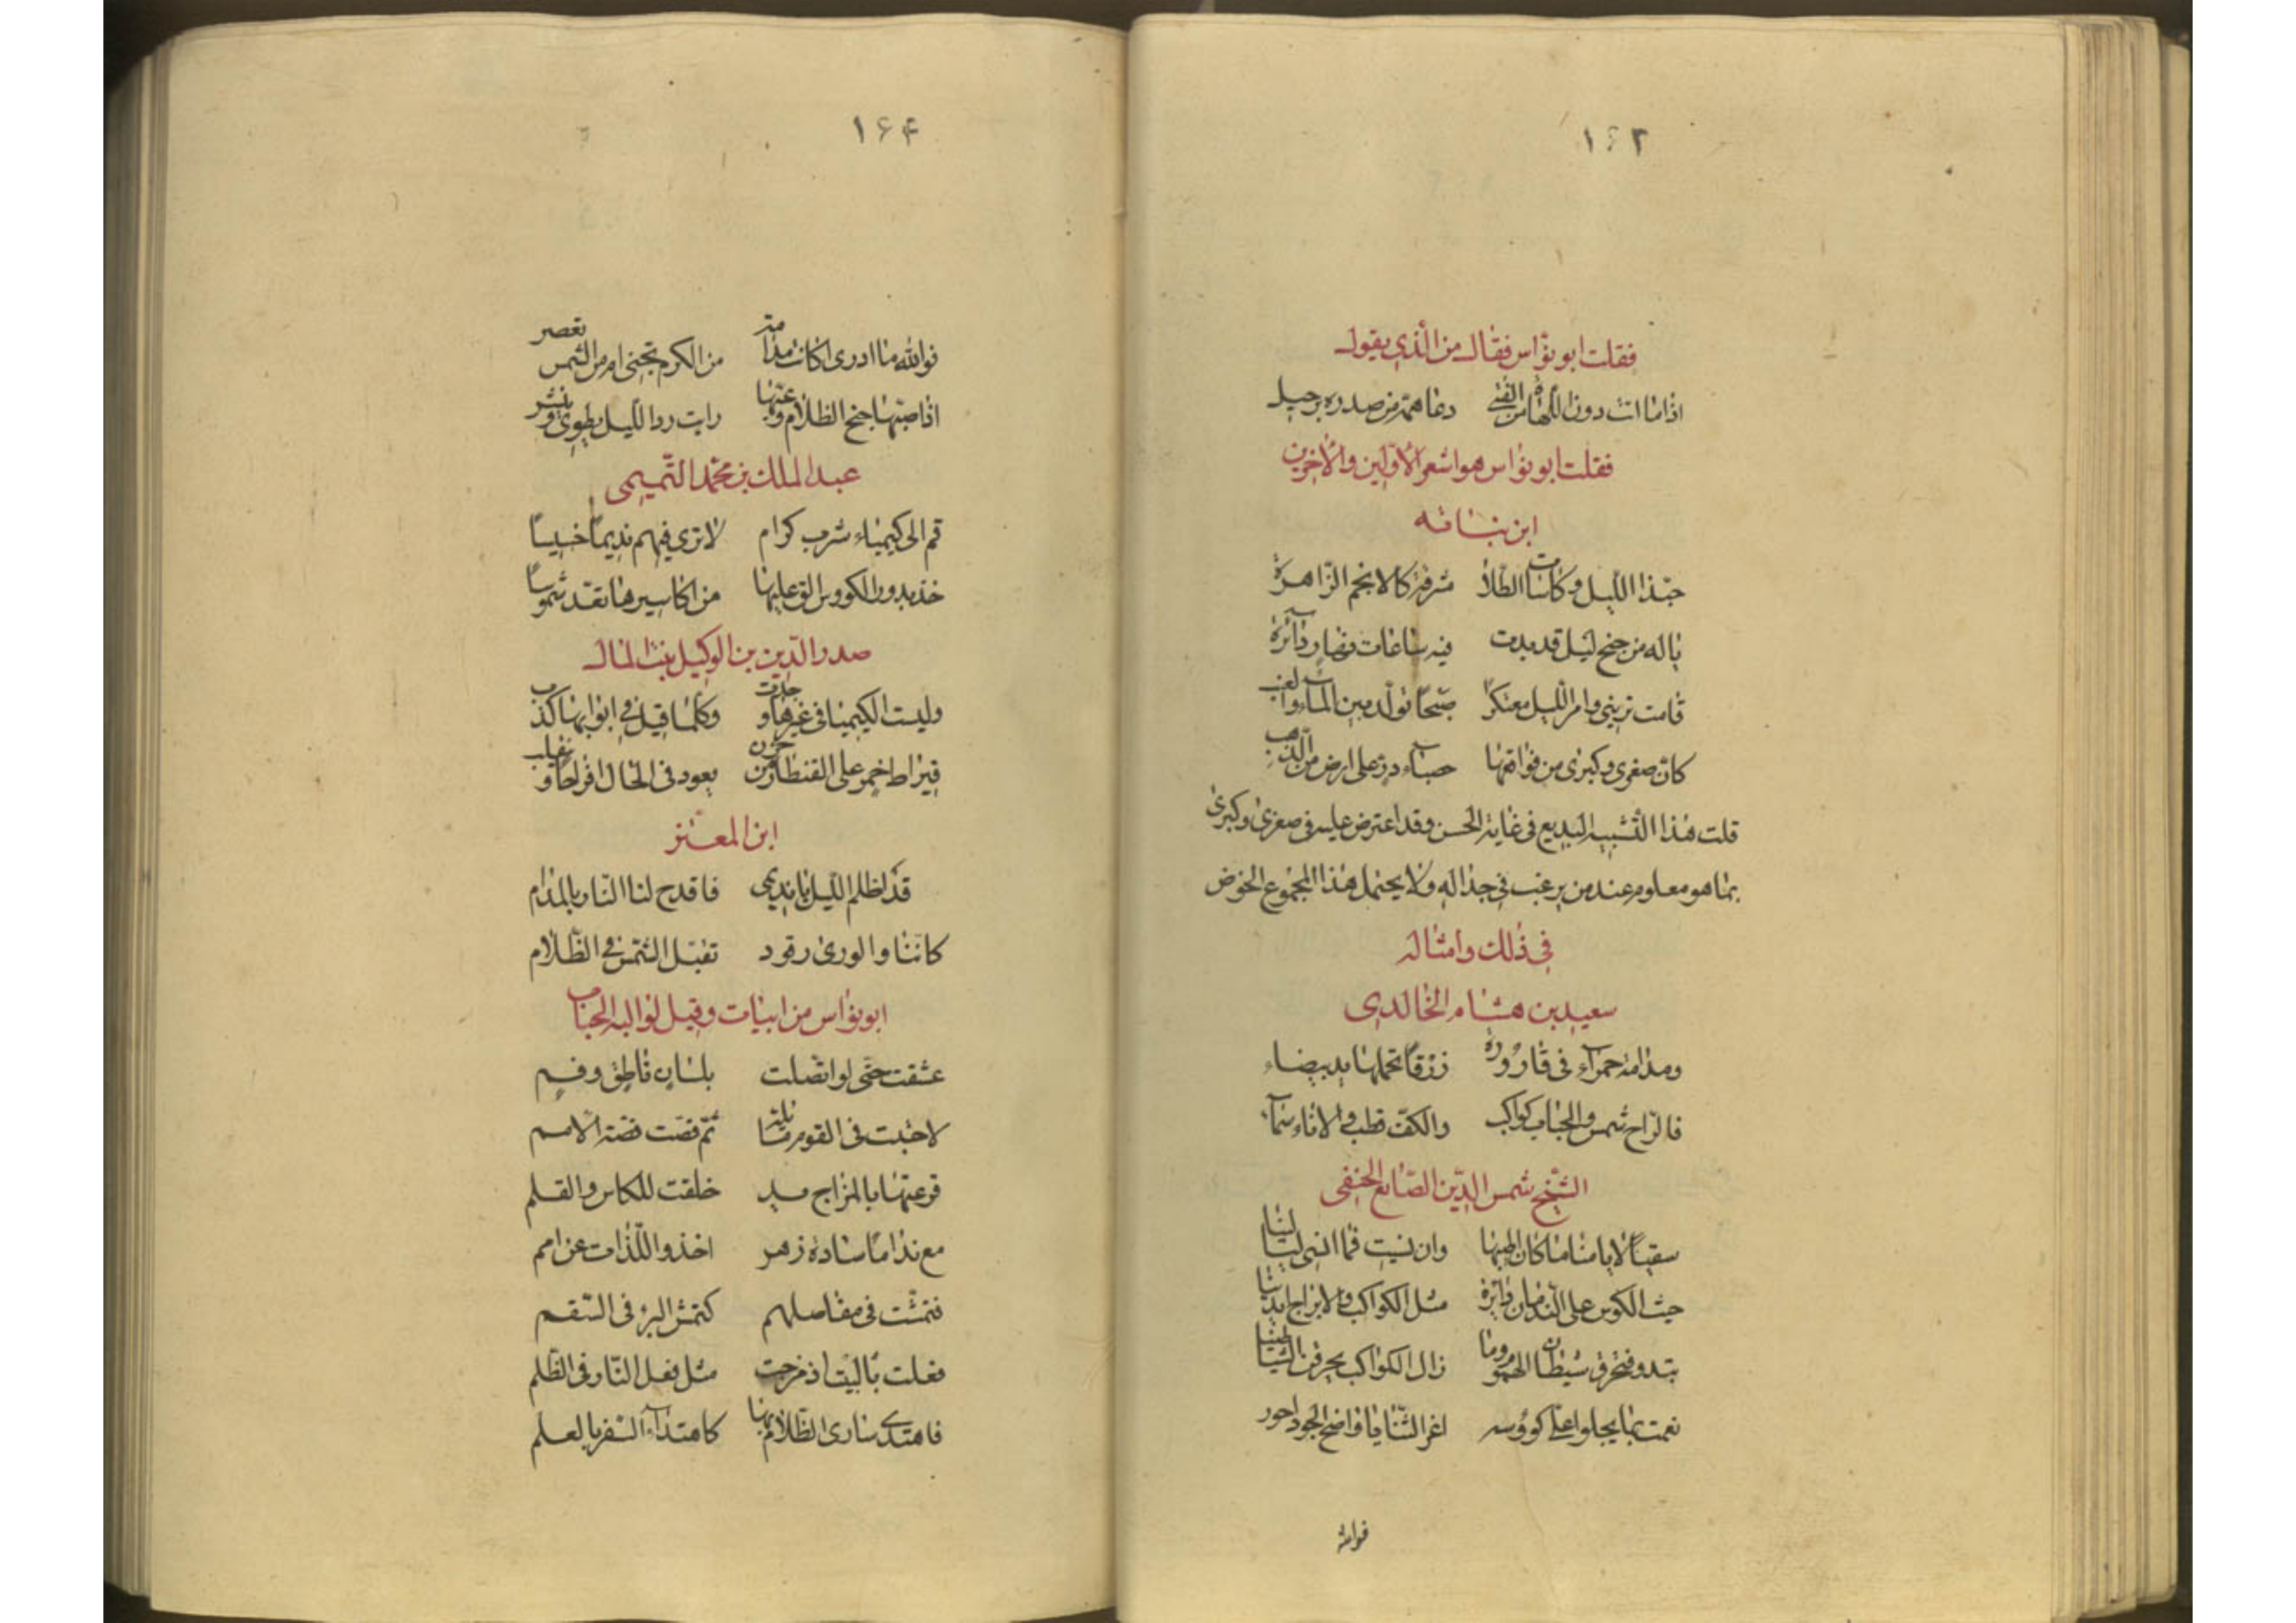 ۱۶۳
فقلت ابو نؤاس فقال من الذي يقول
اذا ما اتت دون اللهاة من الفتى دعا همه من صدره برحيل
فقلت ابو نؤاس هو اشعر الاولين والاخرين
ابن نباته
حبذا الليل وكاسات الطلا مشرفة كالانجم الزاهرة
ياله من جنح ليل قد بدت فيه ساعات نهار دآئرة
قامت تريني وامر الليل معتكرا صبحا تولد بين المآء والعنب
كان صغرى وكبرى من فواقعها حصبآء در على ارض من الذهب
قلت هذا التشبيه البديع في غاية الحسن وقد اعترض عليه في صغرى وكبرى
بما هو معلوم عند من يرغب في جداله ولا يحتمل هذا المجموع الخوض
في ذلك وامثاله
سعيد بن هشام الخالدي
ومدامة حمرآء في قارورة زرقا تحملها يد بيضاء
فالراح شمس والحباب كواكب والكف قطب والاناء سمآء
الشيخ شمس الدين الصايغ الحنفي
سقيا لايامنا ما كان اطيبها وان نسيت فما انسى ليالينا
حيث الكوس على الندمان دائرة مثل الكواكب والابراج ايدينا
تبدو فتحرق شيطان الهموم وما زال الكواكب يحرقن الشياطينا
نعمت بما يجلو اعلي كووسه اغر الثنايا واضح الجيد احور
فوالله
۱۶۴
فوالله ما ادرى اكانت مدامة من الكرم تجنى ام من الشمس تعصر
اذا صبها جنح الظلام وعبها رايت ردا الليل يطوى وينشر
عبد الملك بن محمد التميمى
قم الى كيمياء شرب كرام لا ترى فيهم نديما خسيسا
خذ بدور الكووس الق عليها من اكاسيرها تعد شموسا
صدر الدين بن الوكيل بيت المال
وليست الكيميا فى غيرها وجدت وكلما قيل في ابوابها كذب
قيراط خمر على القنطار من حزن يعود فى الحال افراحا وينقلب
ابن المعتز
قد اظلم الليل يا نديمى فاقدح لنا النار بالمدام
كاننا والورى رقود تقبل الشمس في الظلام
ابو نؤاس من ابيات وقيل لوالبه الحباب
عتقت حتى لو اتصلت بلسان ناطق وفم
لاحتبت فى القوم ماثلة ثم قصت قصة الامم
قرعتها بالمزاج يد خلقت للكاس والقلم
مع ندامى سادة زهر اخذوا اللذات عن امم
فتمشت فى مفاصلهم كتمشى البرء فى السقم
فعلت بالبيت اذ مزجت مثل فعل النار فى الظلم
فاهتدى سارى الظلام بها كاهتدآء السفر بالعلم